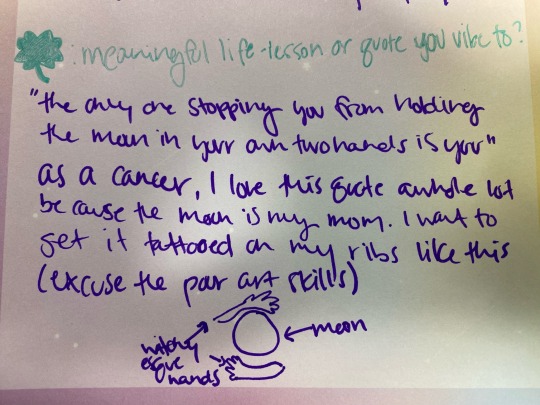 : meaningful life-lesson or quote you vibe to?
"the only one stopping you from holding
the moon in your own two hands is you"
as a cancer, I love this quote awhole lot
because the moon is my mom. I want to
get it tattooed on my ribs like this
(excuse the poor art skills)
witchy
esque
hands
moon